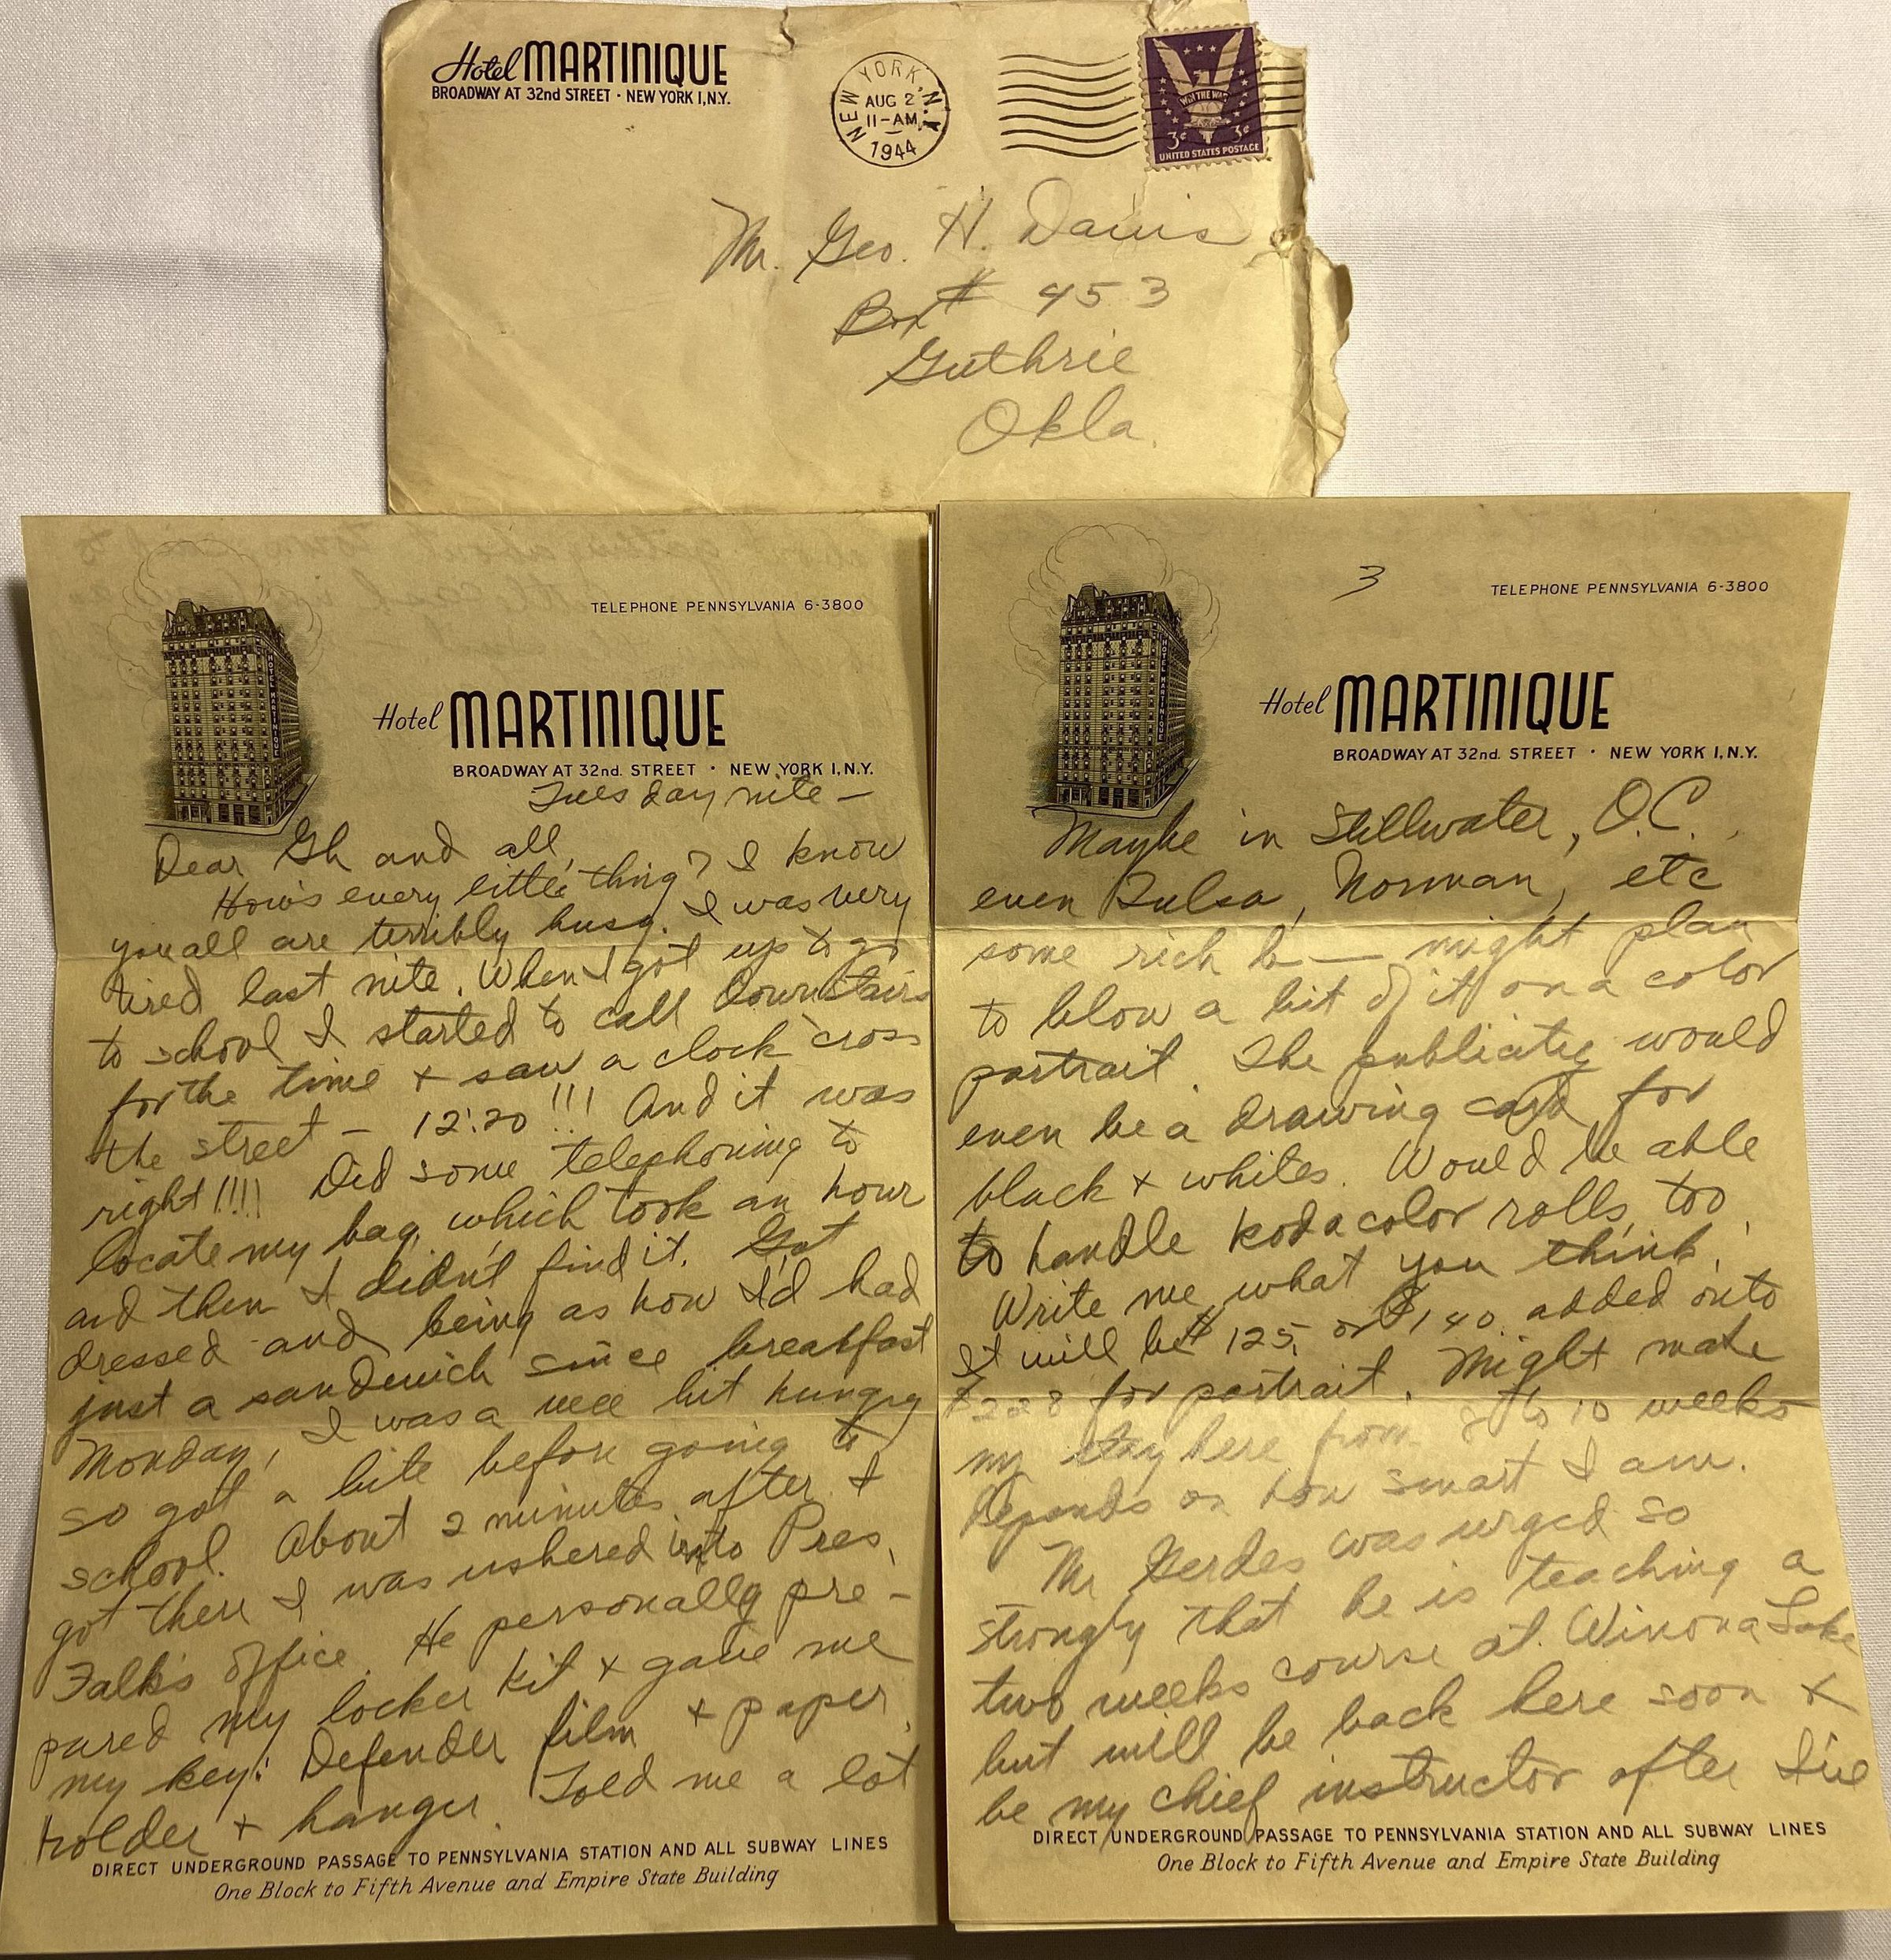 Hotel MARTINIQUE
BROADWAY AT 32nd STREET · NEW YORK 1, N.Y.
NEW YORK, N.Y.
AUG 2
11-AM
1944
WIN THE WAR
3¢ 3¢
UNITED STATES POSTAGE
Mr. Geo. H. Davis
Box # 453
Guthrie
Okla.
TELEPHONE PENNSYLVANIA 6-3800
HOTEL MARTINIQUE
Hotel MARTINIQUE
BROADWAY AT 32nd. STREET · NEW YORK 1, N.Y.
Tuesday nite —
Dear Gh and all,
How's every little thing? I know
you all are terribly busy. I was very
tired last nite. When I got up to go
to school I started to call downstairs
for the time + saw a clock 'cross
the street — 12:20!!! And it was
right!!!! Did some telephoning to
locate my bag, which took an hour
and then I didn't find it. Got
dressed and being as how I'd had
just a sandwich since breakfast
Monday, I was a wee bit hungry
so got a bite before going to
school. About 2 minutes after I
got there I was ushered into Pres.
Falk's office. He personally pre-
pared my locker kit + gave me
my key: Defender film + paper,
holder + hanger. Told me a lot
DIRECT UNDERGROUND PASSAGE TO PENNSYLVANIA STATION AND ALL SUBWAY LINES
One Block to Fifth Avenue and Empire State Building
3
TELEPHONE PENNSYLVANIA 6-3800
HOTEL MARTINIQUE
Hotel MARTINIQUE
BROADWAY AT 32nd. STREET · NEW YORK 1, N.Y.
Maybe in Stillwater, O.C.,
even Tulsa, Norman, etc
some rich b— might plan
to blow a bit of it on a color
portrait. The publicity would
even be a drawing card for
black + whites. Would be able
to handle kodacolor rolls, too.
Write me what you think.
It will be $125. or $140. added onto
$228 for portrait. Might make
my stay here from 8 to 10 weeks
Depends on how smart I am.
Mr Gerdes was urged so
strongly that he is teaching a
two weeks course at Winona Lake
but will be back here soon +
be my chief instructor after I've
DIRECT UNDERGROUND PASSAGE TO PENNSYLVANIA STATION AND ALL SUBWAY LINES
One Block to Fifth Avenue and Empire State Building